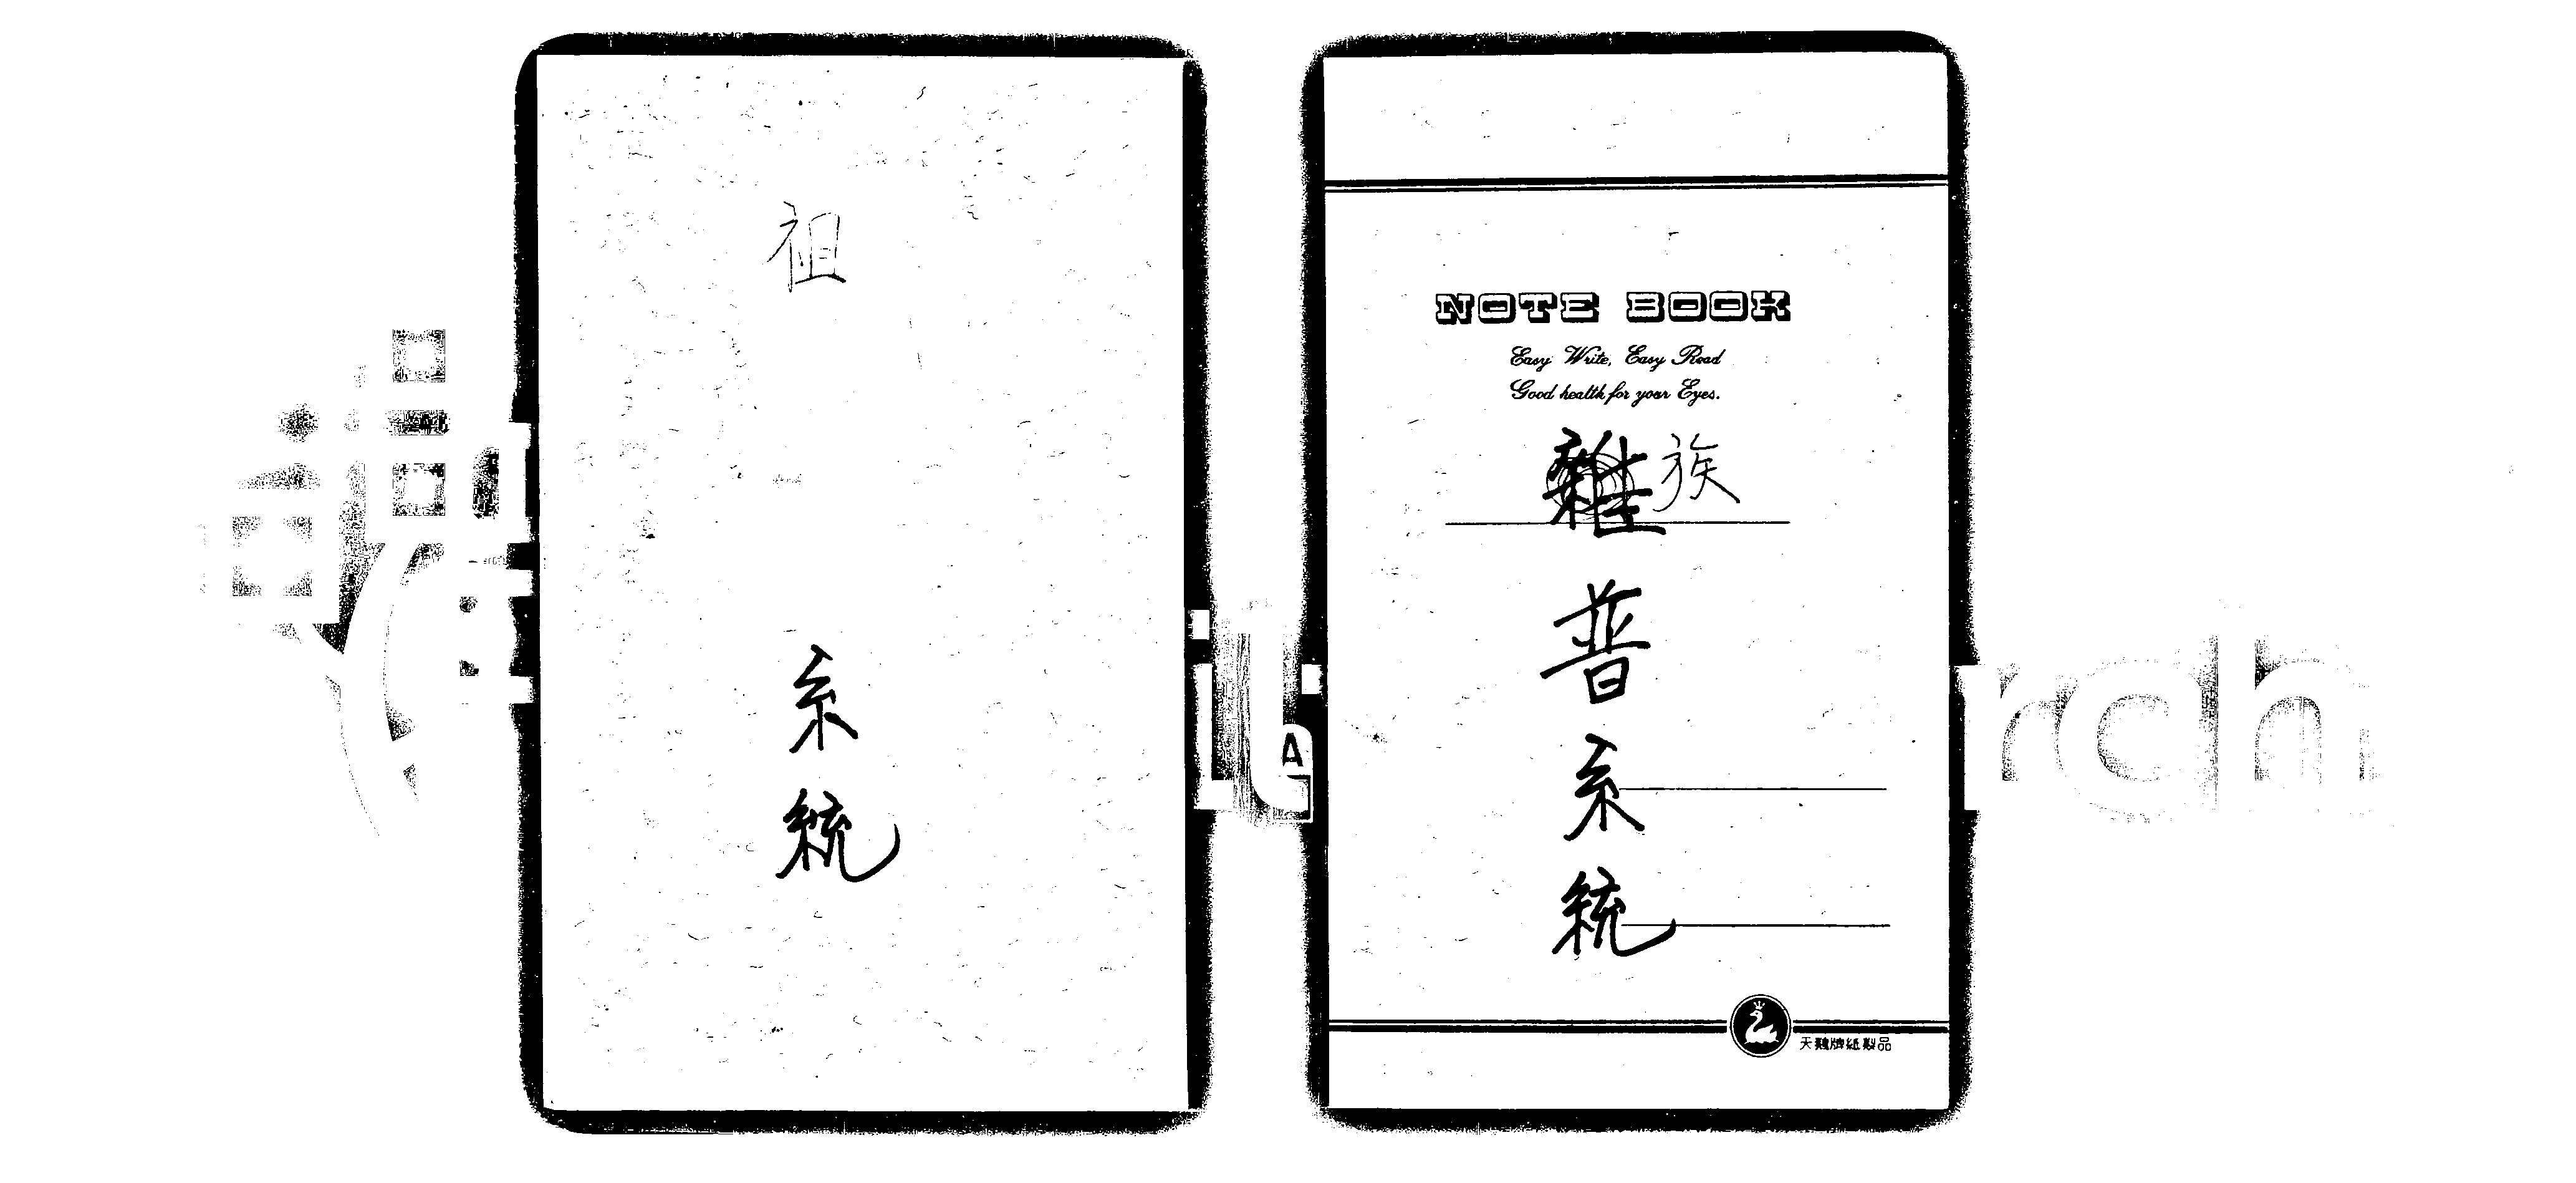 祖
系
統
NOTE BOOK
Easy Write, Easy Read
Good health for your Eyes.
雜族
普
系
統
天鵝牌紙製品
A
rch